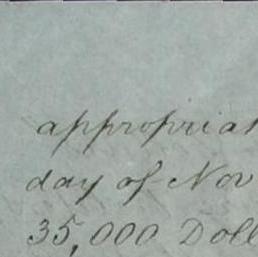 appropriat
day of Nov
35,000 Doll